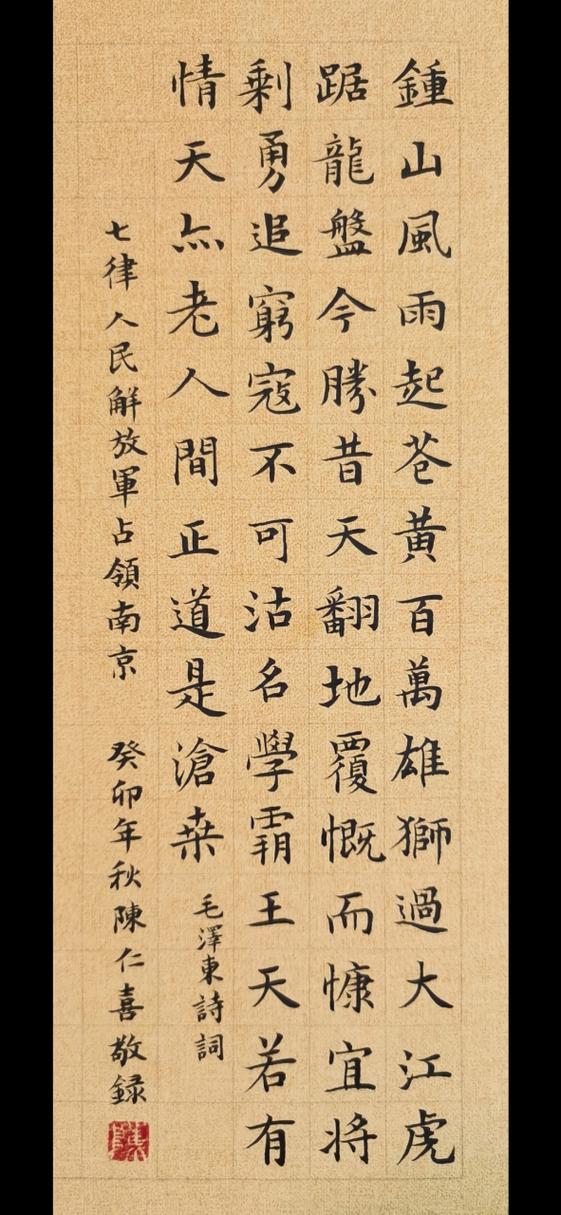 鍾山風雨起苍黃百萬雄獅過大江虎
踞龍盤今勝昔天翻地覆慨而慷宜將
剩勇追窮寇不可沽名學霸王天若有
情天亦老人間正道是滄桒
毛澤東詩詞
七律人民解放軍占領南京 癸卯年秋陳仁喜敬録